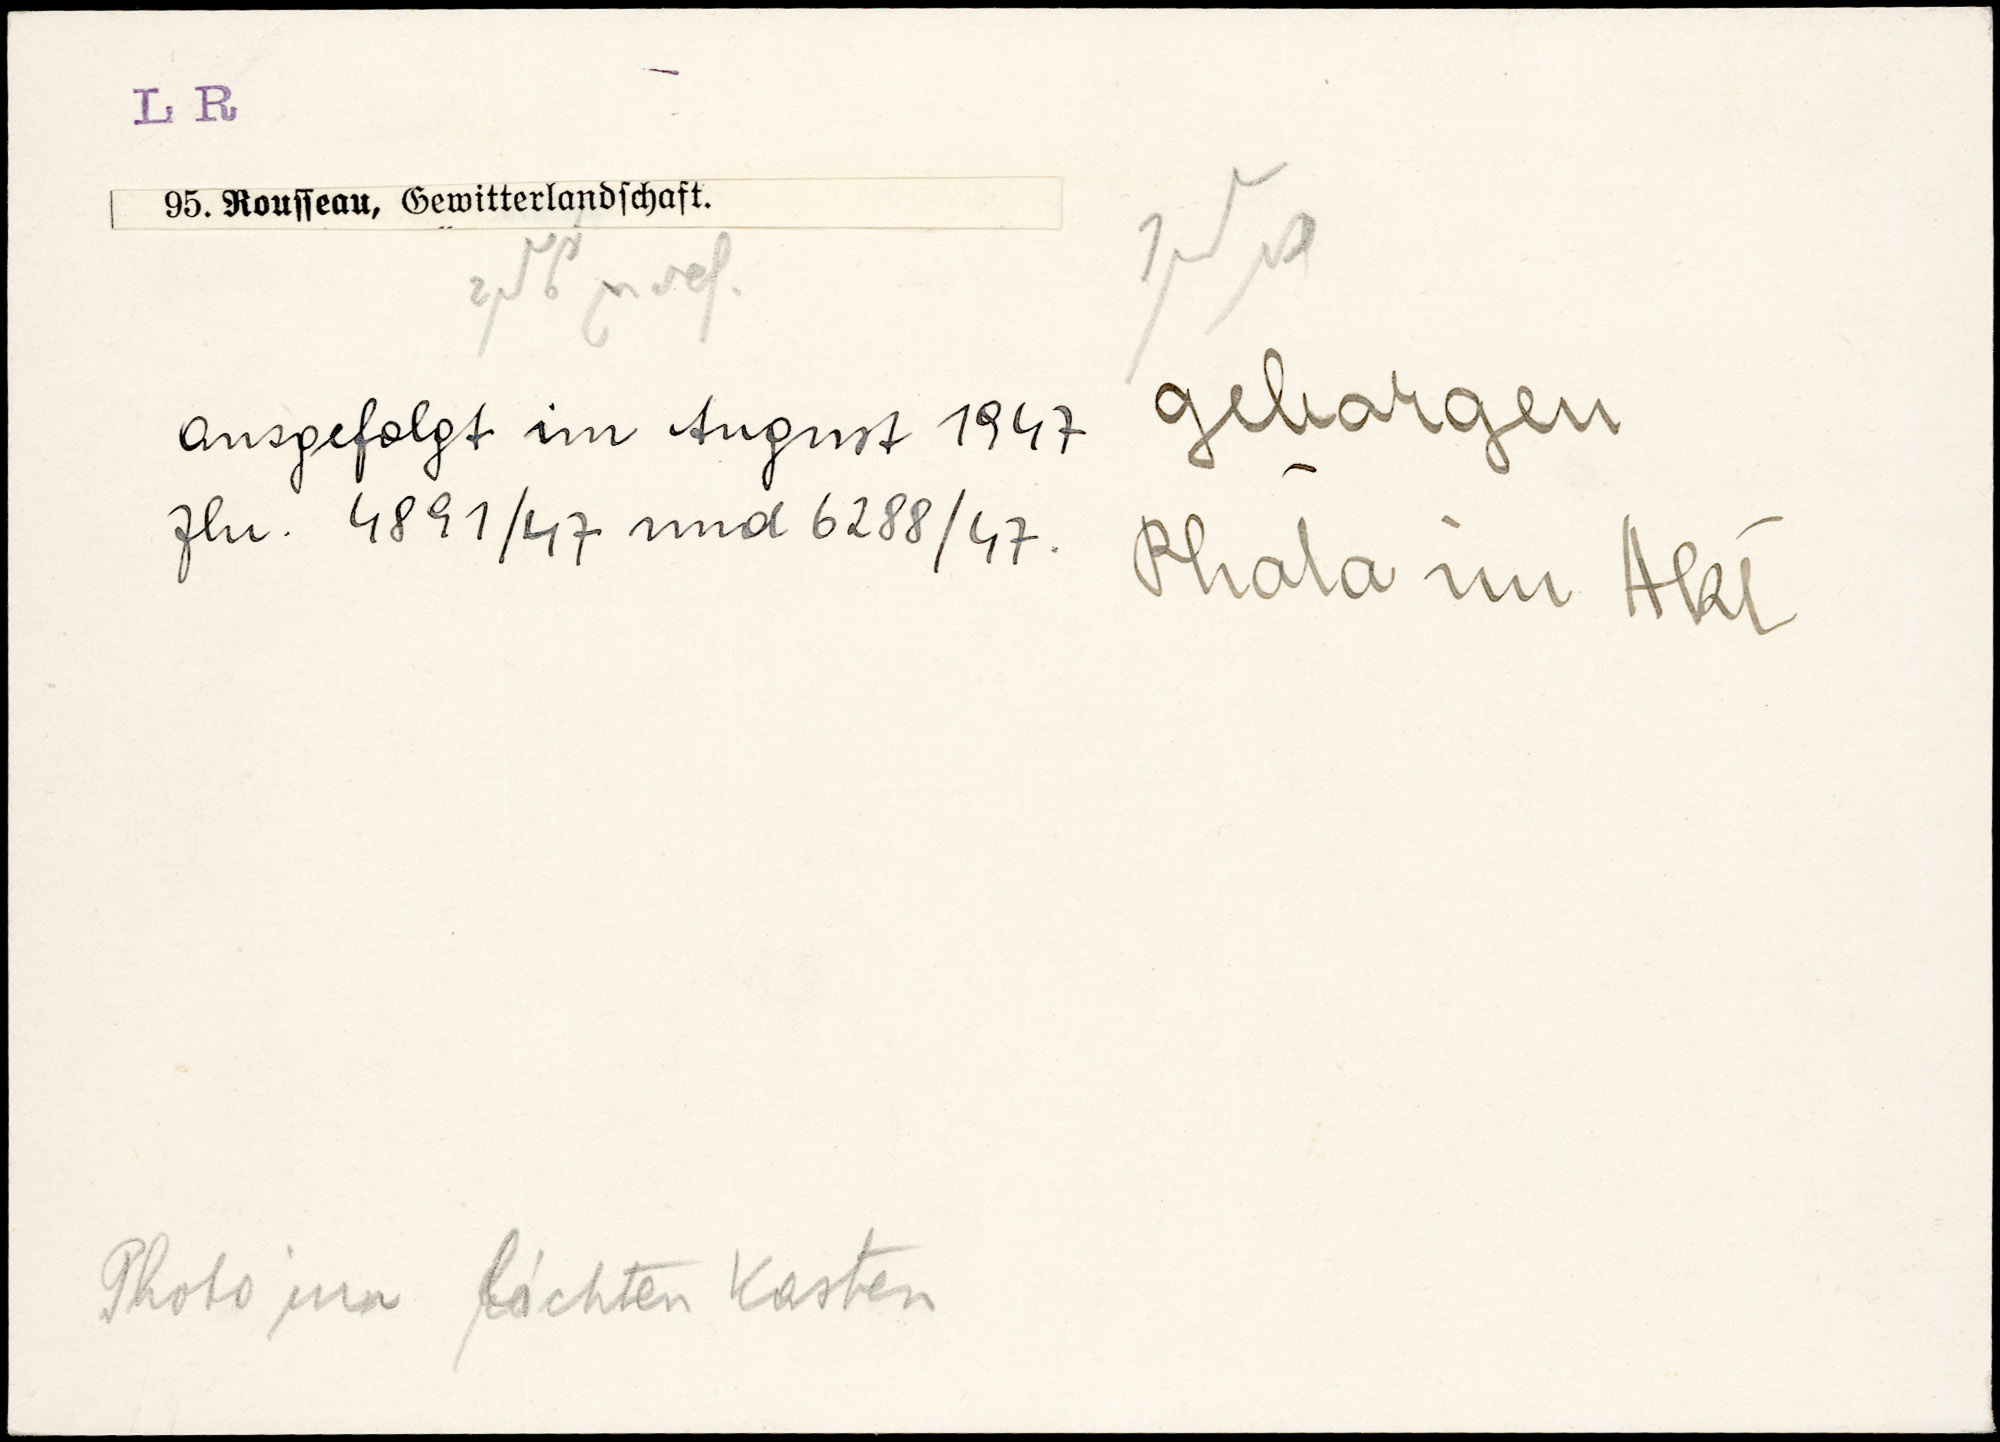 L R
95. Rousseau, Gewitterlandschaft.
ausgefolgt im August 1947
Zln. 4891/47 und 6288/47.
geborgen
Photo im Akt
Photo im lichten Kasten